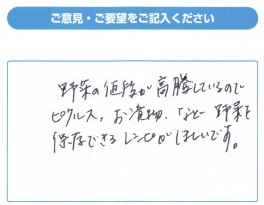 ご意見・ご要望をご記入ください
野菜の値段が高騰しているので
ピクルス、お漬物、など野菜を
保存できるレシピがほしいです。